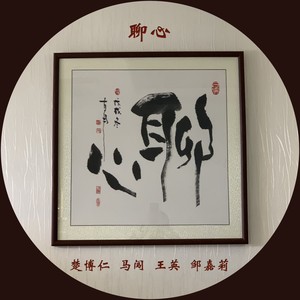 聊心
聊
心
楚博仁 马阅 王英 邹嘉莉